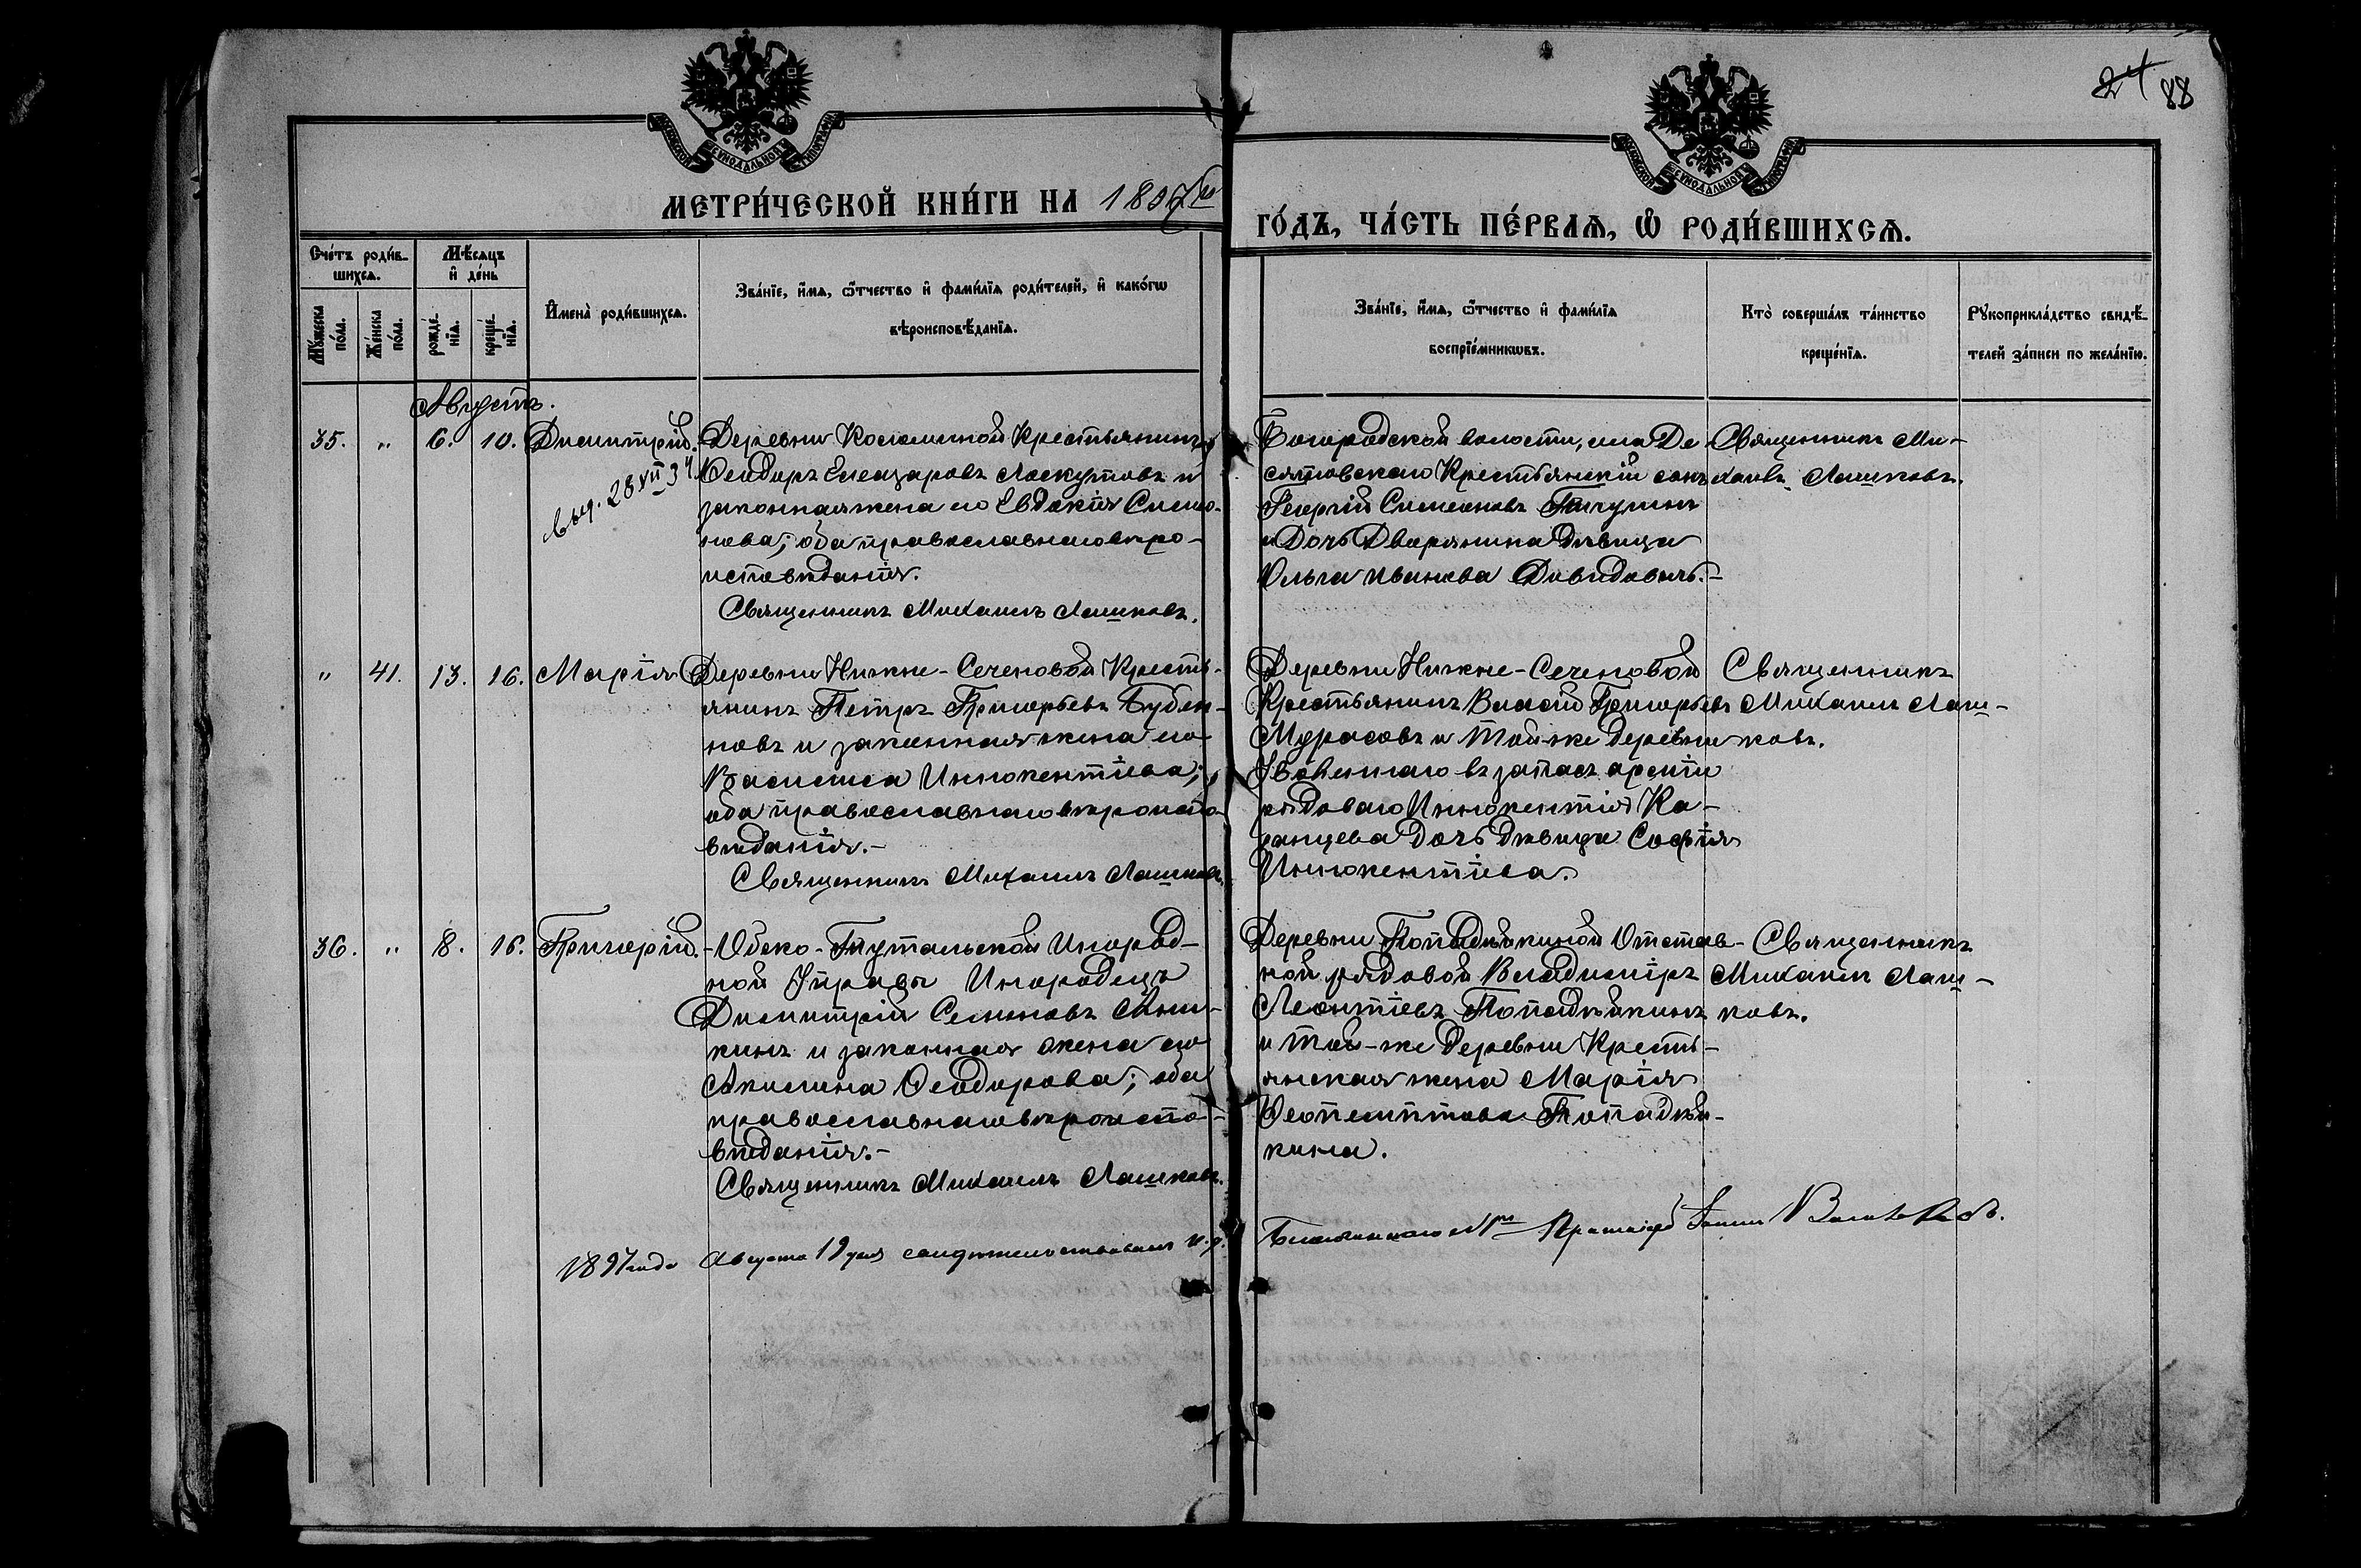 24 88
МОСКОВСКОЙ СѴНОДАЛЬНОЙ ТИПОГРАФІИ
МОСКОВСКОЙ СѴНОДАЛЬНОЙ ТИПОГРАФІИ
МЕТРИ́ЧЕСКОЙ КНИ́ГИ НА 1897й
ГО́ДЪ, ЧА́СТЬ ПЕ́РВАѦ, Ѡ҆ РОДИ́ВШИХСѦ.
Сче́тъ роди́в-
шихсѧ.
Мꙋ́жеска по́ла.
Же́нска по́ла.
Мѣ́сѧцъ
и҆ де́нь
рожде́-нїѧ.
креще́-нїѧ.
И҆мена̀ роди́вшихсѧ.
Зва́нїе, и҆́мѧ, ѻ҆́тчество и҆ фами́лїѧ роди́телей, и҆ како́гѡ
вѣроисповѣ́данїѧ.
Зва́нїе, и҆́мѧ, ѻ҆́тчество и҆ фами́лїѧ
воспрїе́мникѡвъ.
Кто̀ соверша́лъ та́инство
креще́нїѧ.
Рꙋкоприкла́дство свидѣ́-
телей за́писи по жела́нїю.
Августъ.
35. „ 6. 10. Димитрій.
выд. 28 XII 34
Деревни Крестьянинъ
Ѳеодоръ Елеазаровъ Лоскутовъ и
законная жена его Евдокія Симео-
нова; оба православнаго вѣро-
исповѣданія.
Священникъ Михаилъ Лашковъ.
Богородской волости, села Де-
сятовскаго Крестьянскій сынъ
Георгій Симеоновъ Пичугинъ
и Дочь Дворянина Дѣвица
Ольга Иванова Давидовичъ.-
Священникъ Ми-
хаилъ Лашковъ.
„ 41. 13. 16. Марія
Деревни Нижне-Сеченовой Кресть-
янинъ Петръ Григорьевъ Бубен-
новъ и законная жена его
Василиса Иннокентіева;
оба православнаго вѣроиспо-
вѣданія.-
Священникъ Михаилъ Лашковъ.
Деревни Нижне-Сеченовой
Крестьянинъ Власій Григорьевъ
Мурасовъ и той-же деревни
Уволеннаго въ запасъ арміи
рядоваго Иннокентія Ка-
занцева Дочь дѣвица Софія
Иннокентіева.
Священникъ
Михаилъ Лаш-
ковъ.
36. „ 8. 16. Григорій.
-Обско-Тутальской Инород-
ной Управы Инородецъ
Димитрій Семеновъ Ани-
кинъ и законная жена его
Акилина Ѳеодорова; оба
православнаго вѣроиспо-
вѣданія.-
Священникъ Михаилъ Лашковъ.
Деревни Попадѣйкиной Отстав-
ной рядовой Владиміръ
Леонтіевъ Попадѣйкинъ
и той-же деревни Кресть-
янская жена Марія
Ѳеопемптова Попадѣй-
кина.
Священникъ
Михаилъ Лаш-
ковъ.
1897 года Августа 19 дня свидѣтельствовалъ и. д. Благочиннаго Протоіерей